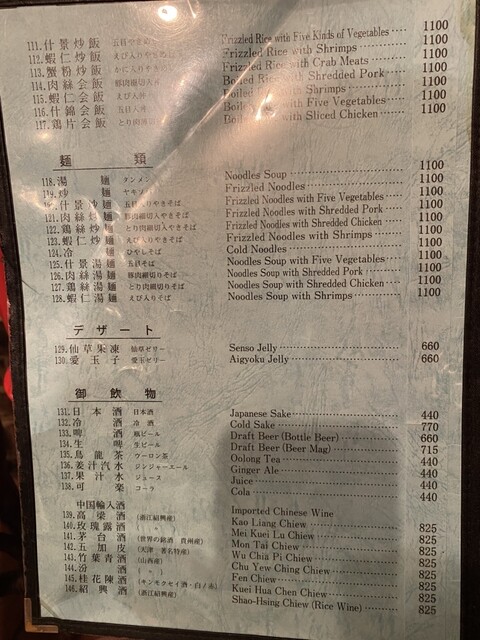 111.什景炒飯 五目やきめし Frizzled Rice with Five Kinds of Vegetables 1100
112.蝦仁炒飯 えび入りやきめし Frizzled Rice with Shrimps 1100
113.蟹粉炒飯 かに入りやきめし Frizzled Rice with Crab Meats 1100
114.肉絲会飯 豚肉細切入丼 Boiled Rice with Shredded Pork 1100
115.蝦仁会飯 えび入丼 Boiled with Shrimps 1100
116.什錦会飯 五目入丼 with Five Vegetables 1100
117.鶏片会飯 とり肉 with Sliced Chicken 1100
麺類
118.湯麺 タンメン Noodles Soup 1100
119.炒麺 ヤキソバ Frizzled Noodles 1100
120.什景炒麺 五目入りやきそば Frizzled Noodles with Five Vegetables 1100
121.肉絲炒麺 豚肉細切入やきそば Frizzled Noodles with Shredded Pork 1100
122.鶏絲炒麺 とり肉細切入やきそば Frizzled Noodles with Shredded Chicken 1100
123.蝦仁炒麺 えび入りやきそば Frizzled Noodles with Shrimps 1100
124.冷麺 ひやしそば Cold Noodles 1100
125.什景湯麺 五目そば Noodles Soup with Five Vegetables 1100
126.肉絲湯麺 豚肉細切りそば Noodles Soup with Shredded Pork 1100
127.鶏絲湯麺 とり肉細切りそば Noodles Soup with Shredded Chicken 1100
128.蝦仁湯麺 えび入りそば Noodles Soup with Shrimps 1100
デザート
129.仙草果凍 仙草ゼリー Senso Jelly 660
130.愛玉子 愛玉ゼリー Aigyoku Jelly 660
御飲物
131.日本酒 日本酒 Japanese Sake 440
132.冷酒 冷酒 Cold Sake 770
133.啤酒 瓶ビール Draft Beer (Bottle Beer) 660
134.生啤 生ビール Draft Beer (Beer Mag) 715
135.烏龍茶 ウーロン茶 Oolong Tea 440
136.姜汁汽水 ジンジャーエール Ginger Ale 440
137.果汁水 ジュース Juice 440
138.可楽 コーラ Cola 440
中国輸入酒 Imported Chinese Wine
139.高粱酒 (浙江紹興産) Kao Liang Chiew 825
140.玫瑰露酒 Mei Kuei Lu Chiew 825
141.茅台酒 (世界の銘酒 貴州産) Mon Tai Chiew 825
142.五加皮 (天津一著名特産) Wu Chia Pi Chiew 825
143.竹葉青酒 (山西産) Chu Yew Ching Chiew 825
144.汾酒 Fen Chiew 825
145.桂花陳酒 (キンモクセイ酒・白/赤) Kuei Hua Chen Chiew 825
146.紹興酒 (浙江紹興産) Shao-Hsing Chiew (Rice Wine) 825